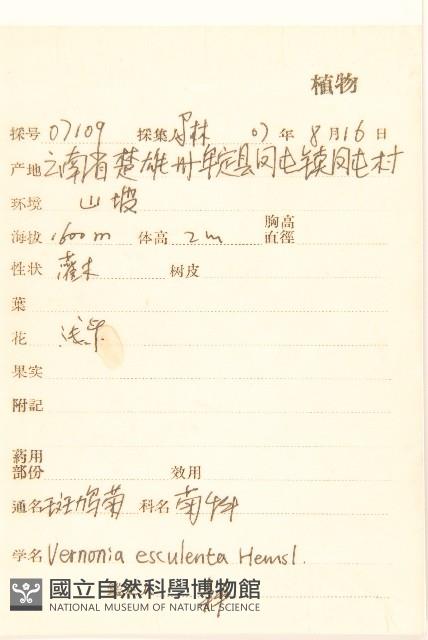 植物
採号 07109 採集人 林 07年8月16日
产地 云南省楚雄州牟定县凤屯镇凤屯村
环境 山坡
海拔 1600m 体高 2m 胸高直徑
性状 灌木 树皮
葉
花 浅紫
果实
附記
葯用部份 效用
通名 斑鸠菊 科名 菊科
学名 Vernonia esculenta Hemsl.
國立自然科學博物館
NATIONAL MUSEUM OF NATURAL SCIENCE